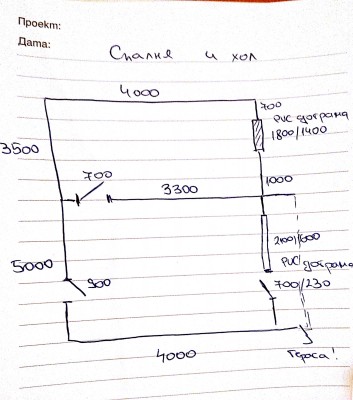 Проект:
Дата:
Спалня и хол
4000
700
PVC дограма
1800/1400
3500
700
1000
3300
2100/1600
5000
PVC дограма
900
700/230
4000
Тераса!